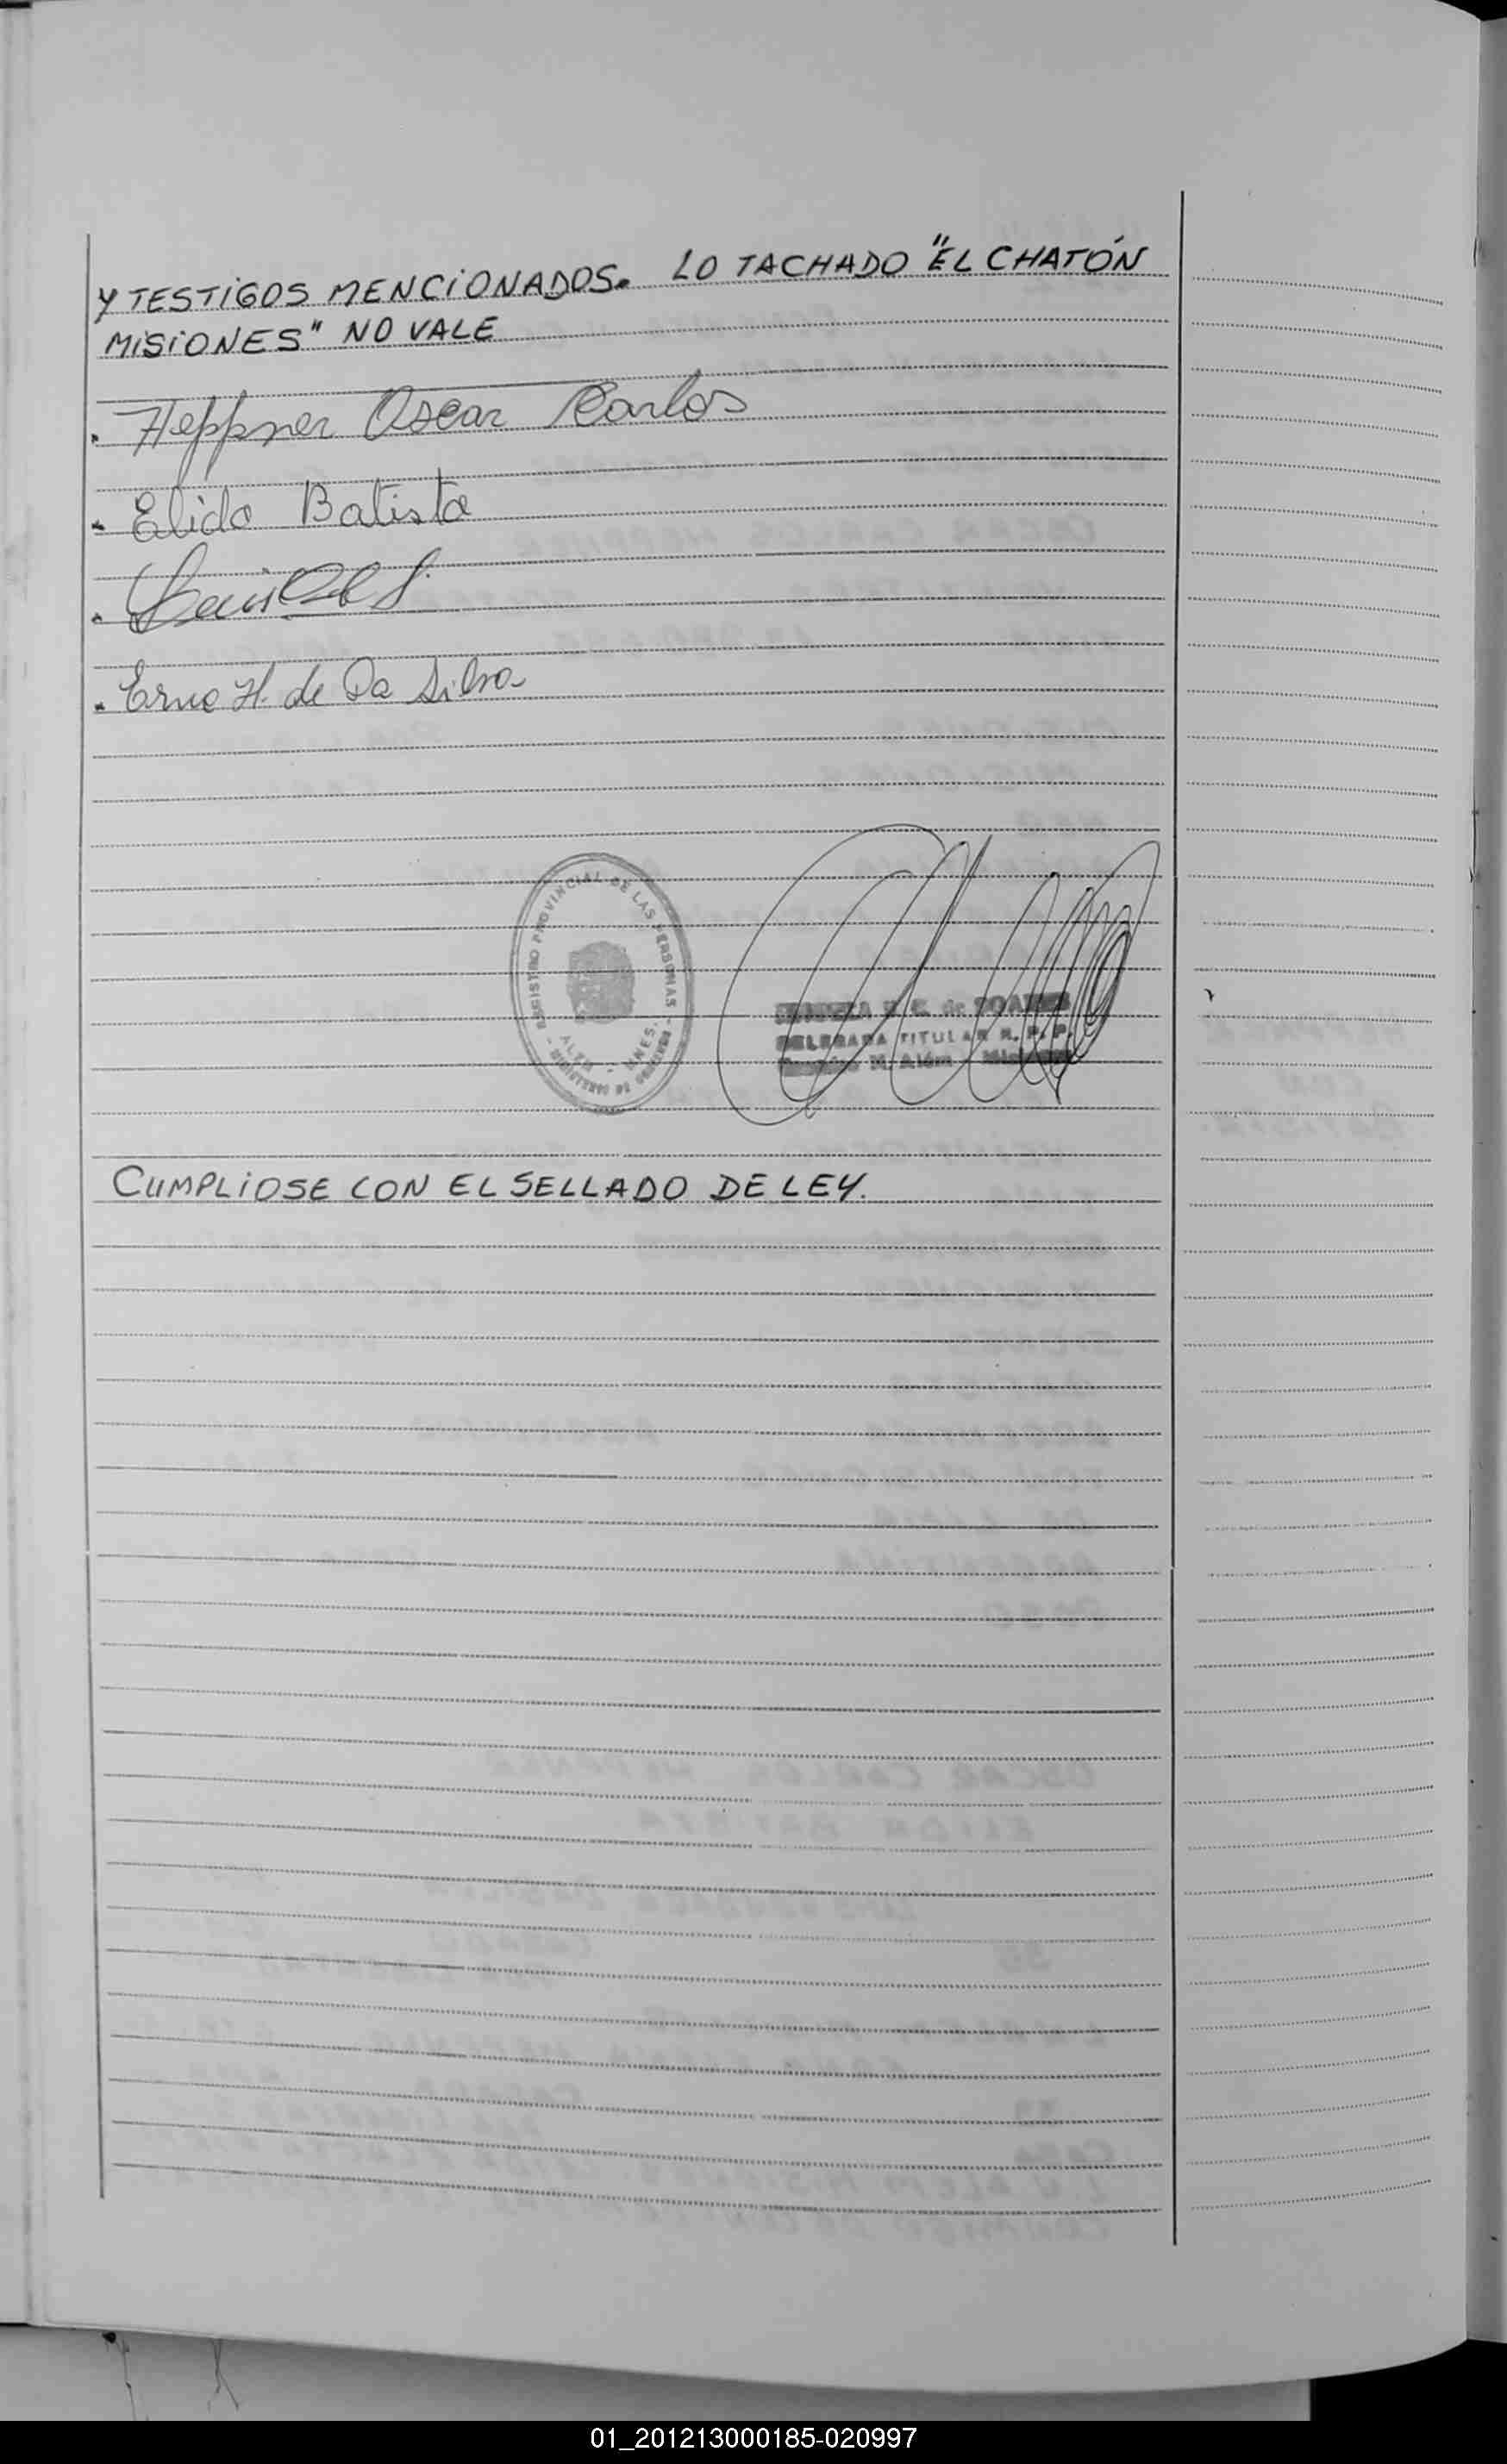 Y TESTIGOS MENCIONADOS. LO TACHADO "EL CHATÓN
MISIONES" NO VALE
Heppner Oscar Carlos
Elida Batista
Erna H. de Da Silva
REGISTRO PROVINCIAL DE LAS PERSONAS
MINISTERIO DE GOBIERNO
de SOARES
DELEGADA TITULAR R. P. P.
N. Além - Misiones
CUMPLIOSE CON EL SELLADO DE LEY.
01_201213000185-020997